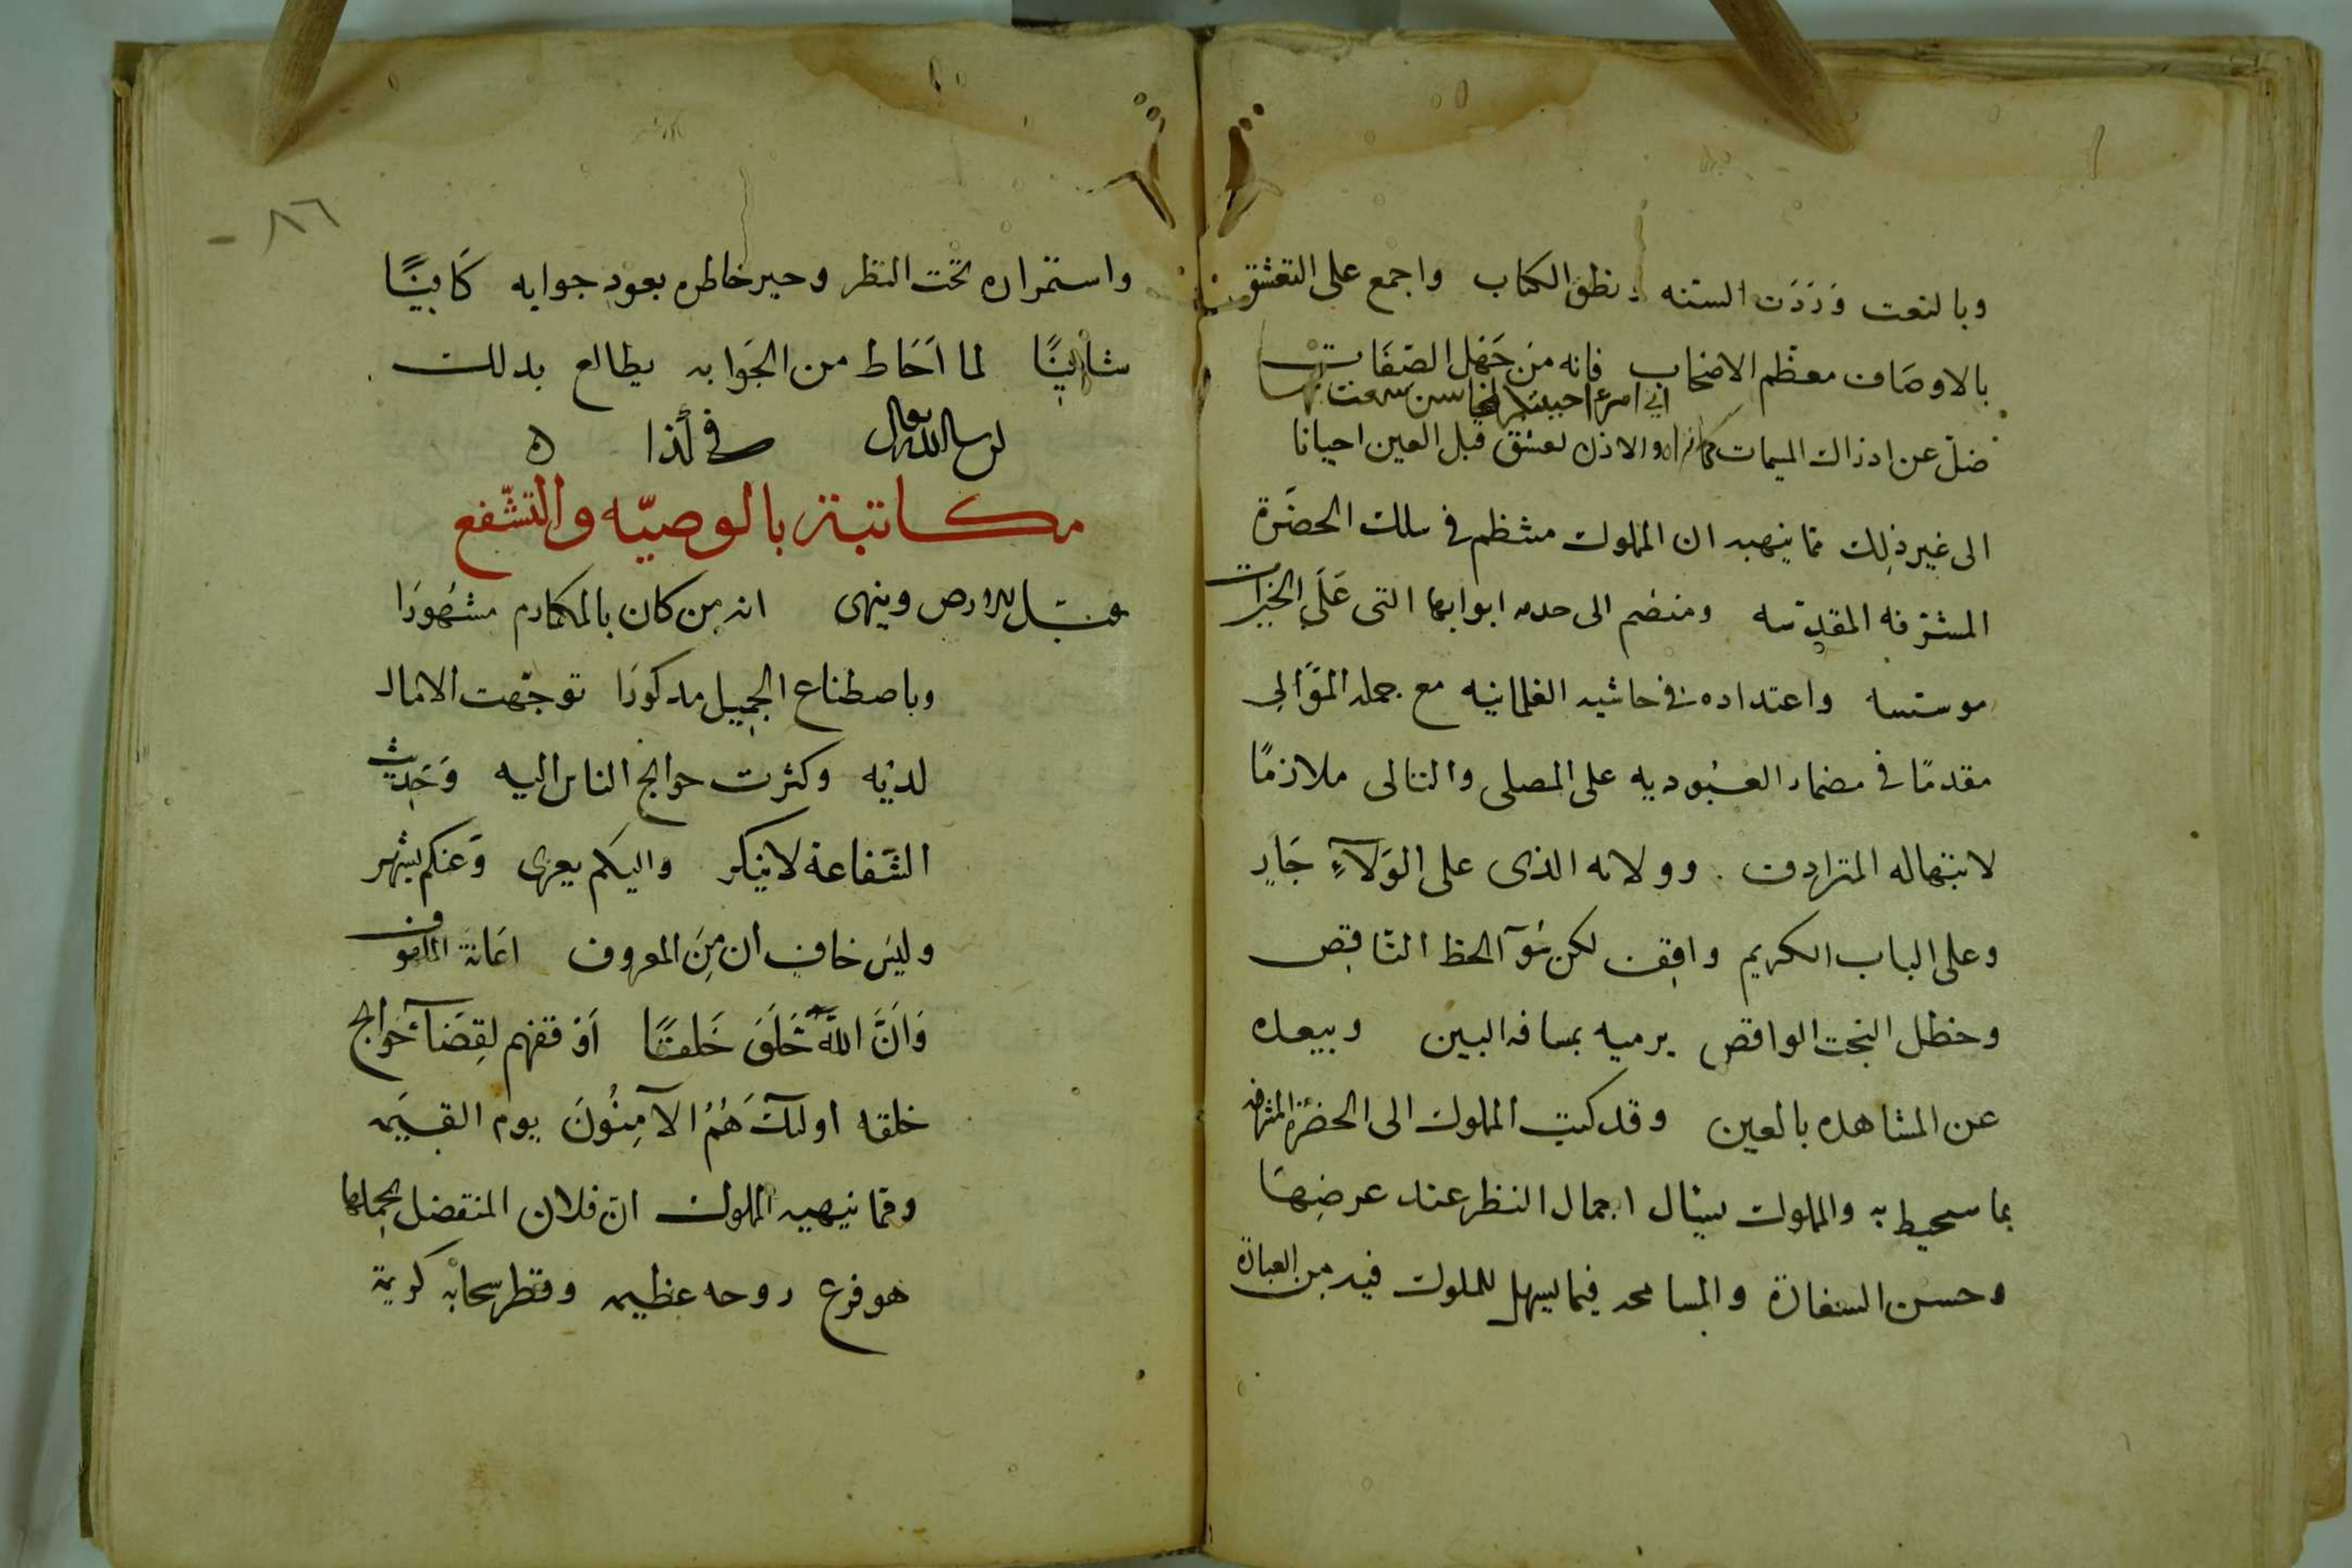 وبالنعت وَرَدَت السنه ونطق الكتاب واجمع على التعشق
بالاوصاف معظم الاصحاب فانه من جَهِل الصفات
اني امرء احببتكم لمحاسن سمعت بها
ضل عن ادراك المسمات والاذن تعشق قبل العين احيانا
الى غير ذلك مما ينهيه ان المملوك منتظم في سلك الحضرة
المشرفه المقدسه ومنضم الى خدمه ابوابها التى عَلَى الخيرات
موسسه واعتداده في حاشيه الغلمانيه مع جمله المَوَالي
مقدمًا في مضمار العبوديه على المصلى والتالى ملازمًا
لابتهاله المترادف وولائه الذى على الوَلآءِ جَارٍ
وعلى الباب الكريم واقِف لكن سوٓ الحظ النَاقِص
وحنظل البخت الواقص يرميه بمسافه البين ويبعده
عن المشاهده بالعين وقد كتب المملوك الى الحضرة المشرفه
بما سيحيط به والمملوك يسٔال اجمال النظر عند عرضِهَا
وحسن السفارة والمسامحه فيما يسهل للمملوك فيه من العبارة
٨٦
واستمراره تحت النظر وجبر خاطره بعود جوابه كَافِيًا
شَافِيًا لما اَحَاط من الجَوَابه يطالع بذلك
في كذا ه
مكاتبة بالوصيّه والتشفع
يقبل الارض وينهى انه من كان بالمكارم مشهُورًا
وباصطناع الجميل مذكورًا توجّهت الامال
لديه وكثرت حوايج الناس اليه وَحَدِيث
الشَفاعة لا ينكر واليكم يعزى وَعنكم يشهر
وليسَ خافٍ ان مِنَ المعروف اعَانَة الملهوف
وَاَنَّ اللَّهَ خَلَقَ خَلقًا اَوقفهم لقِضَآءِ حَوايج
خلقه اوليِكَ هُمُ الآمِنُونَ يوم القيمَه
ومما ينهيه المملوك ان فلان المتفضل بحملها
هو فرع دوحه عظيمه وقطر سحابه كريمة